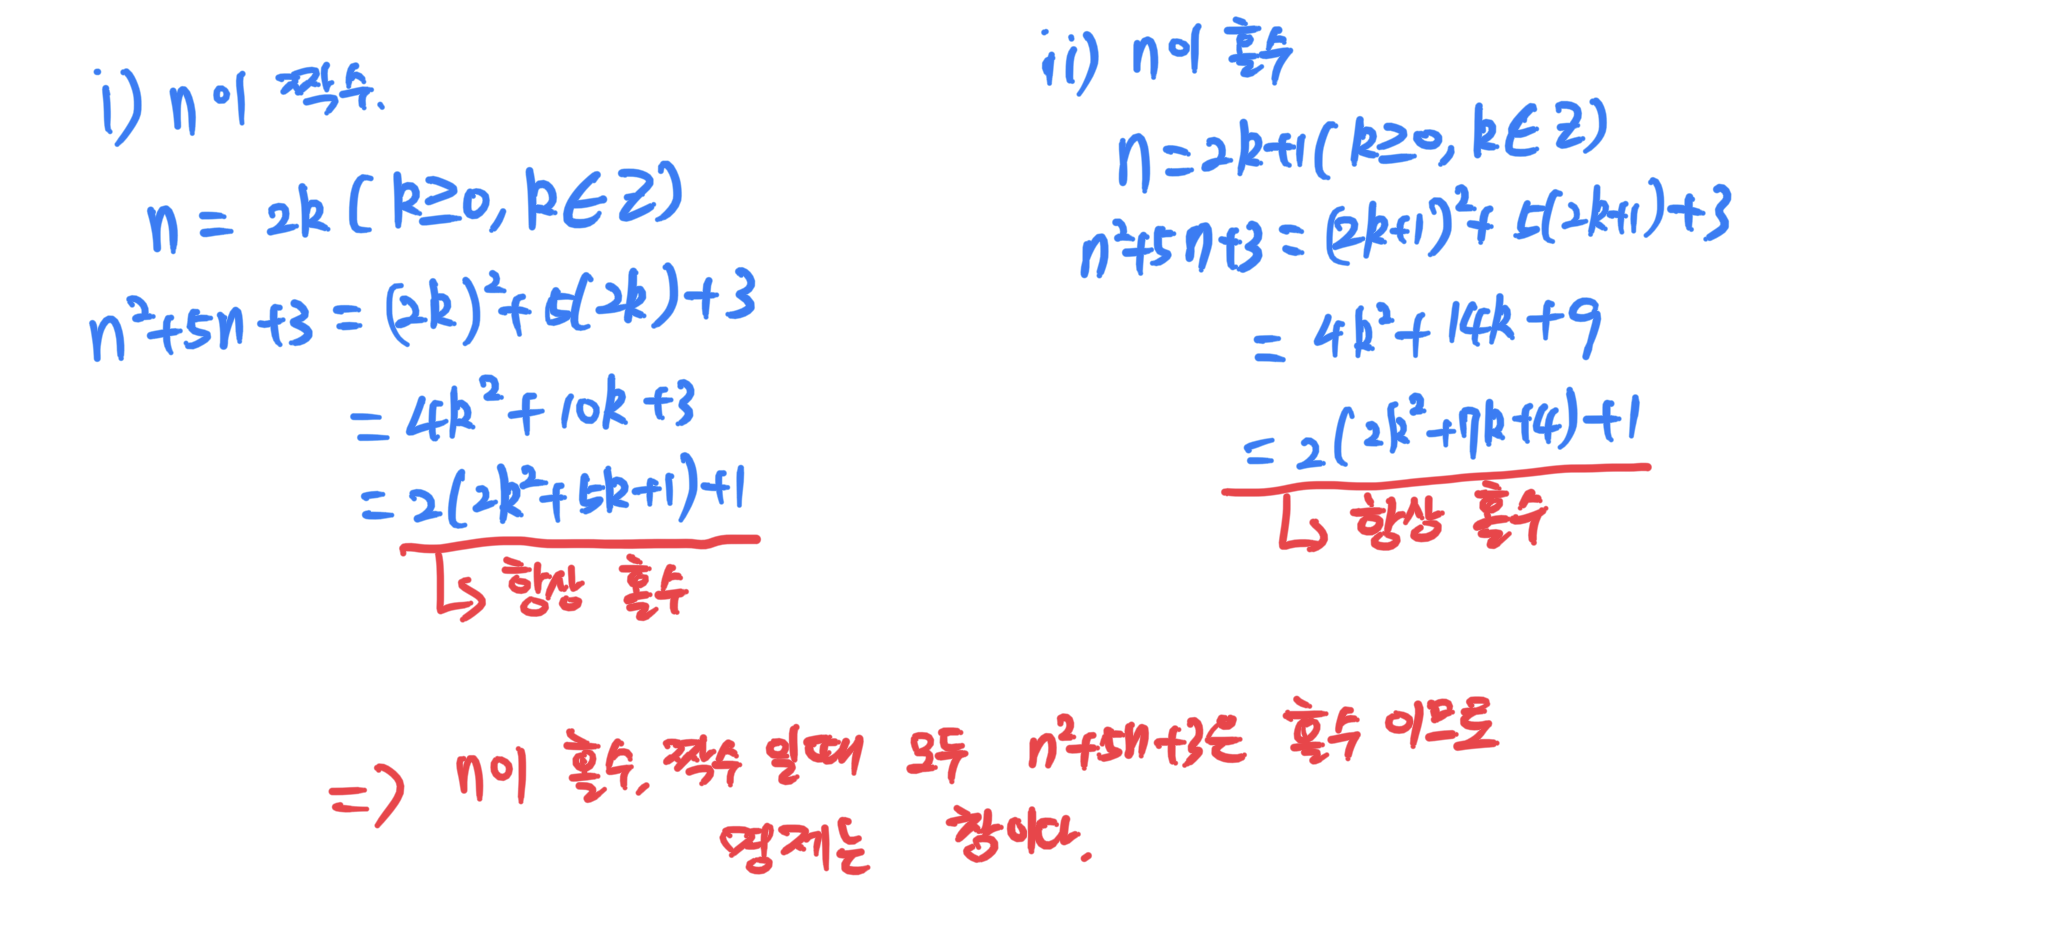 i) n이 짝수.
n = 2k ( k≥0, k∈Z)
n²+5n+3 = (2k)²+5(2k)+3
= 4k²+10k+3
= 2(2k²+5k+1)+1
↳ 항상 홀수
ii) n이 홀수
n=2k+1( k≥0, k∈Z)
n²+5n+3 = (2k+1)²+5(2k+1)+3
= 4k²+14k+9
= 2(2k²+7k+4)+1
↳ 항상 홀수
=> n이 홀수, 짝수 일때 모두 n²+5n+3은 홀수 이므로
명제는 참이다.